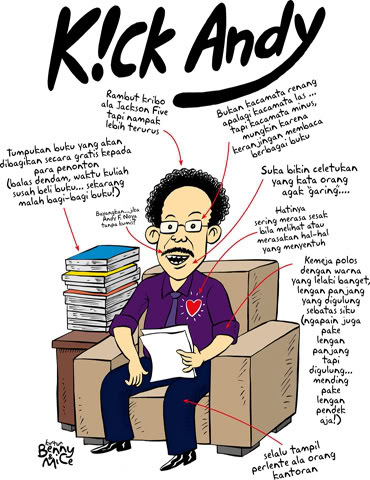 K!CK Andy
Rambut kribo
ala Jackson Five
tapi nampak
lebih terurus
Bukan kacamata renang
apalagi kacamata las ...
tapi kacamata minus,
mungkin karena
keranjingan membaca
berbagai buku
Tumpukan buku yang akan
dibagikan secara gratis kepada
para penonton
(balas dendam, waktu kuliah
susah beli buku... sekarang
malah bagi-bagi buku!)
Suka bikin celetukan
yang kata orang
agak "garing....
Bayangkan...jika
Andy F. Noya
tanpa kumis!
Hatinya
sering merasa sesak
bila melihat atau
merasakan hal-hal
yang menyentuh
Kemeja polos
dengan warna
yang lelaki banget,
lengan panjang
yang digulung
sebatas siku
(ngapain juga
pake
lengan
panjang
tapi
digulung...
mending
pake
lengan
pendek
aja!)
selalu tampil
perlente ala orang
kantoran
kartun
Benny
& Mice